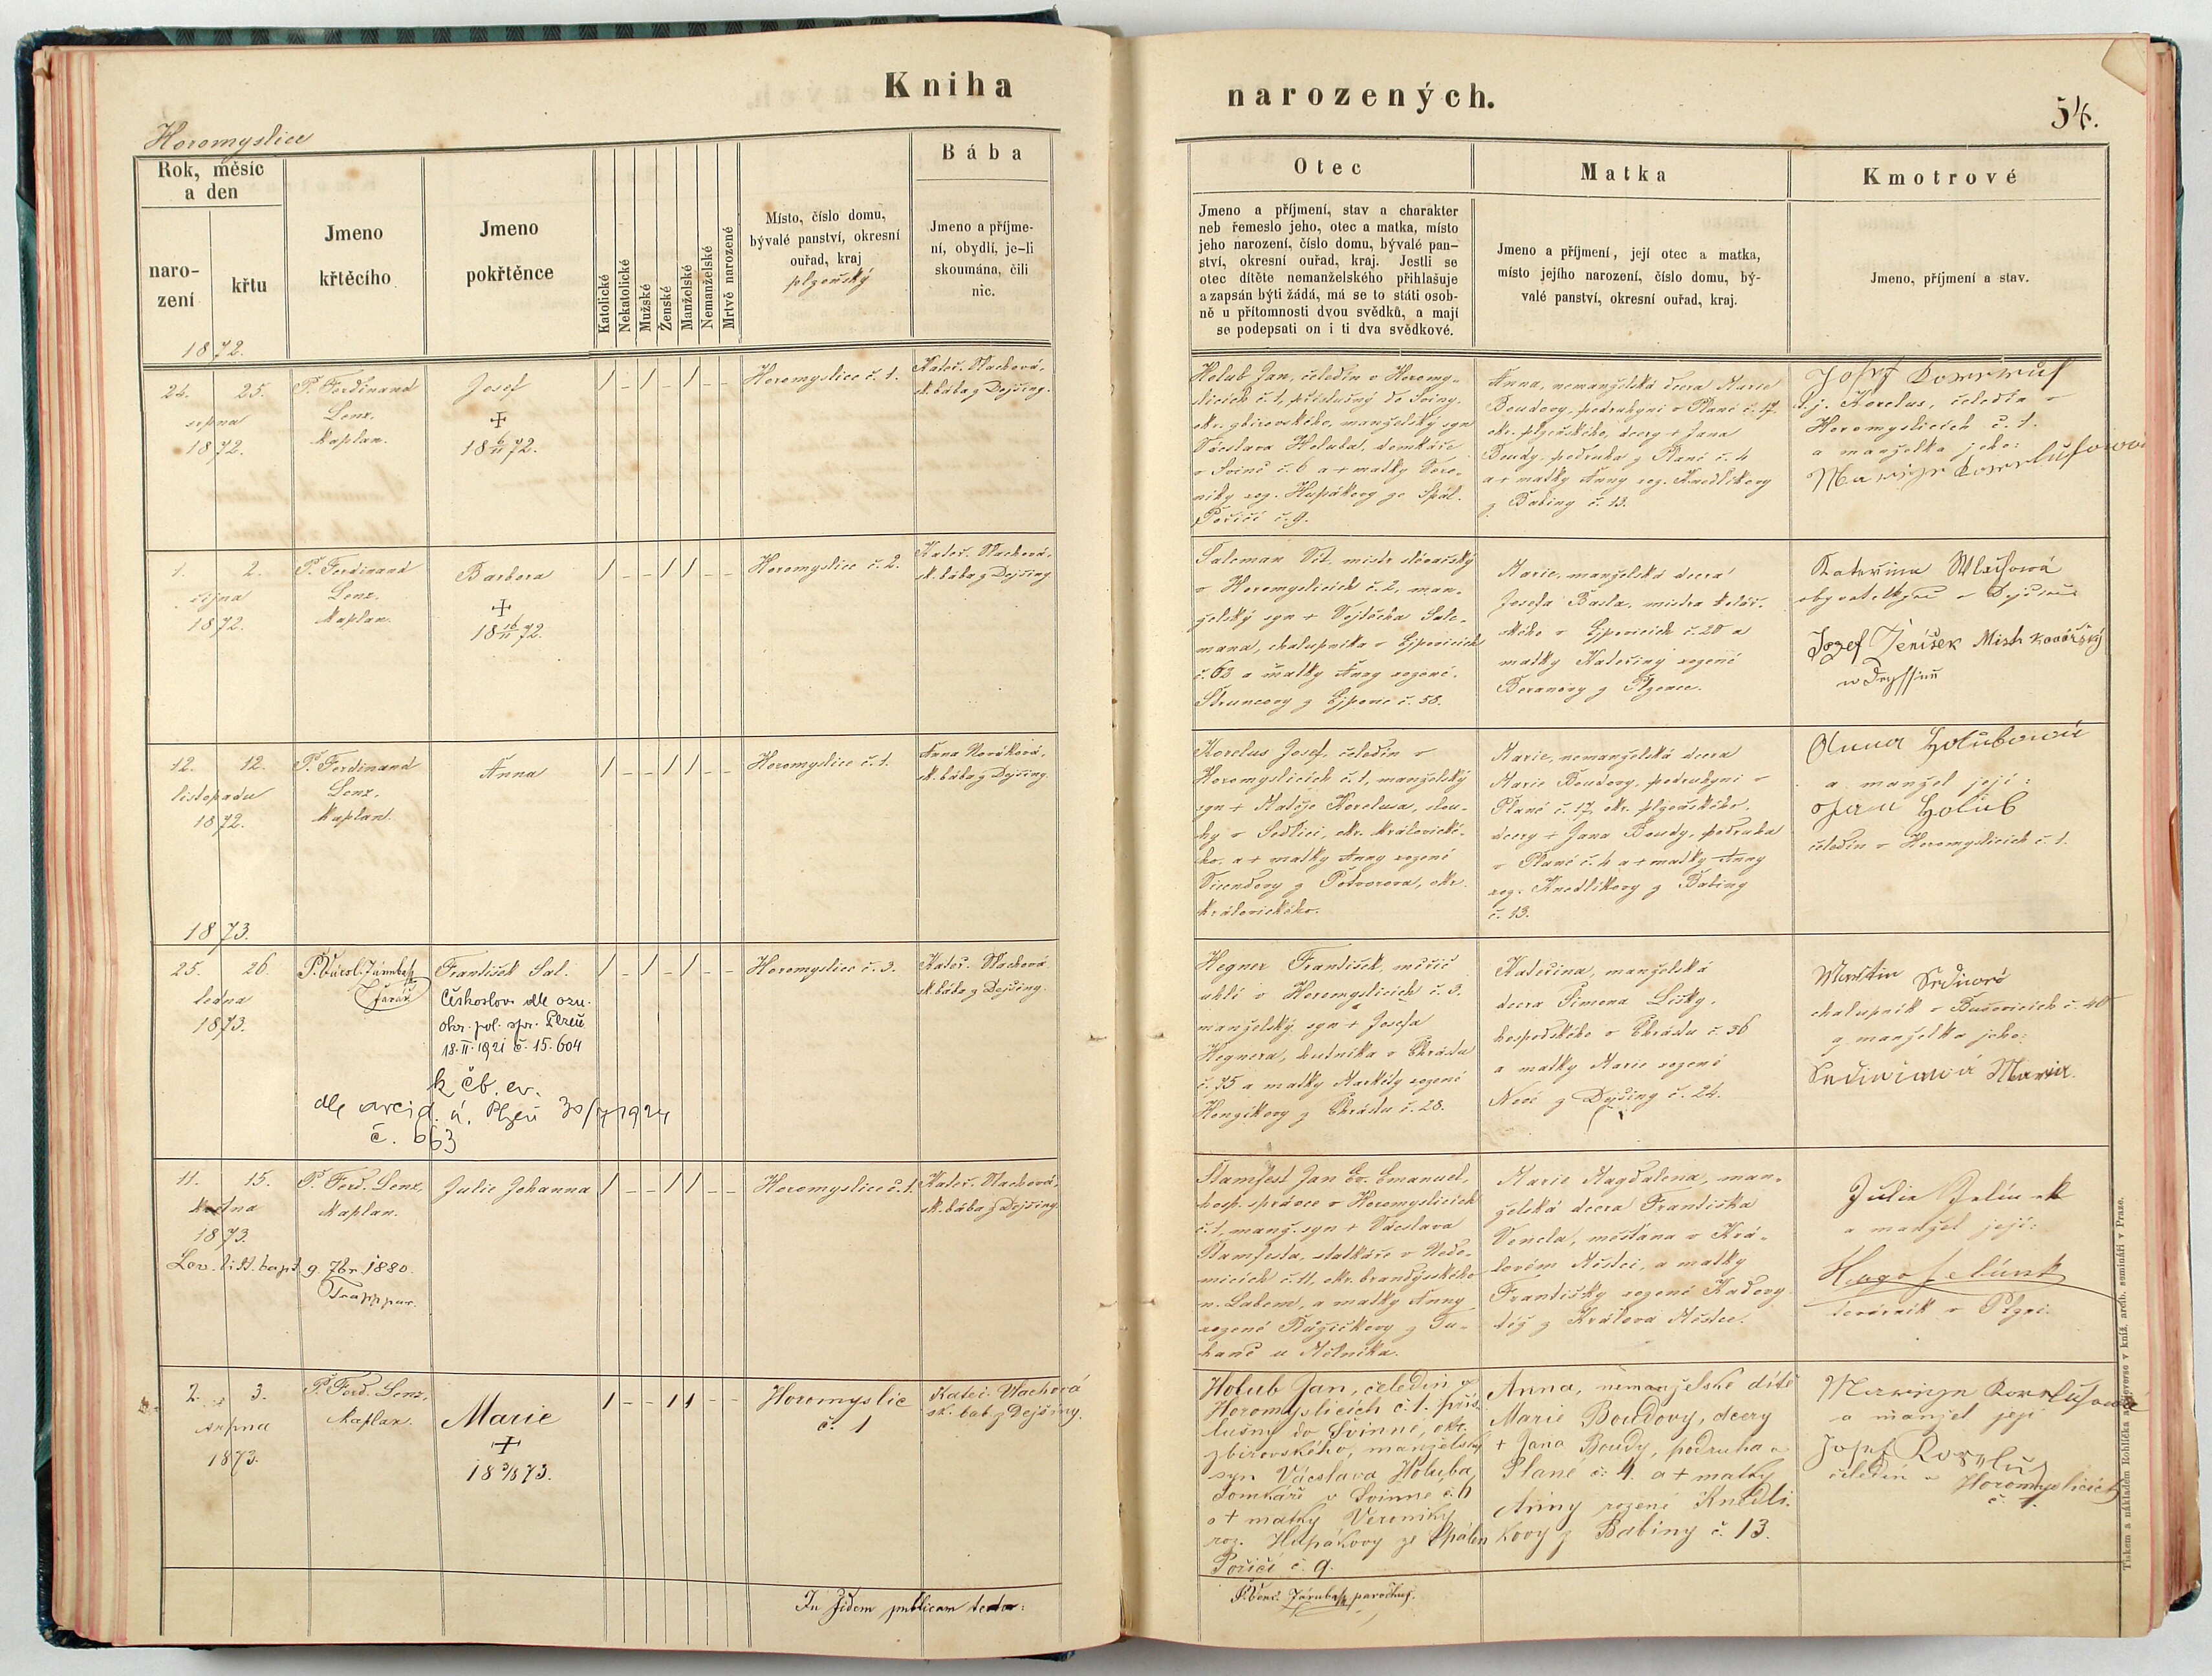 Kniha
narozených.
54.
Horomyslice
Rok, měsíc
a den
naro-
zení
křtu
1872.
Jmeno
křtěcího
Jmeno
pokřtěnce
Katolické
Nekatolické
Mužské
Ženské
Manželské
Nemanželské
Mrtvě narozené
Místo, číslo domu,
bývalé panství, okresní
ouřad, kraj
plzeňský
Bába
Jmeno a příjme-
ní, obydlí, je-li
skoumána, čili
nic.
Otec
Jmeno a příjmení, stav a charakter
neb řemeslo jeho, otec a matka, místo
jeho narození, číslo domu, bývalé pan-
ství, okresní ouřad, kraj. Jestli se
otec dítěte nemanželského přihlašuje
a zapsán býti žádá, má se to státi osob-
ně u přítomnosti dvou svědků, a mají
se podepsati on i ti dva svědkové.
Matka
Jmeno a příjmení, její otec a matka,
místo jejího narození, číslo domu, bý-
valé panství, okresní ouřad, kraj.
Kmotrové
Jmeno, příjmení a stav.
24. 25.
srpna
1872.
P. Ferdinand
Lenz.
kaplan.
Josef
+
18 6/11 72.
/ - / - / - -
Horomyslice č. 1.
Kateř. Vlachová,
sk. bába z Dejšiny.
Holub Jan, čeledín v Horomy-
slicích č. 1, příslušný do Sviny,
okr. zbirovského, manželský syn
Václava Holuba, domkáře
v Svinné č. 6 a + matky Vero-
niky roz. Hupákovy ze Spál.
Poříčí č. 9.
Anna, nemanželská dcera Marie
Boudovy, podruhyni v Plané č. 17.
okr. plzeňského, dcery + Jana
Boudy, podruha z Plané č. 4
a + matky Anny roz. Knedlíkovy
z Babiny č. 13.
Josef
t. j. Korelus, čeledín v
Horomyslicích č. 1.
a manželka jeho:
1. 2.
října
1872.
P. Ferdinand
Lenz.
kaplan.
Barbora
+
18 16/11 72.
/ - - / / - -
Horomyslice č. 2.
Kateř. Vlachová,
sk. bába z Dejšiny
Saleman Vít, mistr
v Horomyslicích č. 2, man-
želský syn + Vojtěcha Sale-
mana, chalupníka v Ejpovicích
č. 63 a matky Anny rozené
Štruncovy z Ejpovic č. 58.
Marie, manželská dcera
Josefa Basla, mistra kolář-
ského v Ejpovicích č. 20 a
matky Kateřiny rozené
Beranovy z Plzence.
Kateřina Wlachová
obyvatelkyně v
Jozef Jeníšek Mistr kovářský
12. 12.
listopadu
1872.
P. Ferdinand
Lenz.
kaplan.
Anna
/ - - / / - -
Horomyslice č. 1.
Anna Nováková,
sk. bába z Dejšiny.
Korelus Josef, čeledín v
Horomyslicích č. 1, manželský
syn + Matěje Korelusa, slou-
hy v Sedlici, okr. královické-
ho, a + matky Anny rozené
z Potvorova, okr.
královického.
Marie, nemanželská dcera
Marie Boudovy, podruhyni v
Plané č. 17, okr. plzeňského,
dcery + Jana Boudy, podruha
v Plané č. 4 a + matky Anny
roz. Knedlíkovy z Babiny
č. 13.
Anna Holubová
a manžel její:
Jan Holub
čeledín v Horomyslicích č. 1.
1873.
25. 26.
ledna
1873.
P. Václ. Járuba
farář
František Sal.
Českoslov. dle ozn.
okr. pol. spr. Plzeň
18. II. 1921 č. 15.604
k čb. ev.
dle arcid. ú. Plzeň 30/7 1924
č. 663
/ - / - / - -
Horomyslice č. 3.
Kateř. Vlachová
sk. bába z Dejšiny.
Hegner František, měřič
uhlí v Horomyslicích č. 3.
manželský syn + Josefa
Hegnera, hutníka v Chrástu
č. 75 a matky Markéty rozené
z Chrástu č. 28.
Kateřina, manželská
dcera Šimona Lišky,
hospodského v Chrástu č. 36
a matky Marie rozené
Nové z Dejšiny č. 24.
Martin
chalupník v Bušovicích č. 40
a manželka jeho:
Maria.
11. 15.
května
1873.
P. Ferd. Lenz,
kaplan.
Julie Johanna
/ - - / / - -
Horomyslice č. 1.
Kateř. Vlachová,
sk. bába z Dejšiny.
Lev. litt. bapt. 9. 7br 1880.
Trapp par.
Štamfest Jan Ev. Emanuel,
hosp. správce v Horomyslicích
č. 1, manž. syn + Václava
Štamfesta, statkáře v Nedo-
micích č. 11, okr. brandýsského
n. Labem, a matky Anny
rozené Růžičkovy z Tu-
haně u Mělníka.
Marie Magdalena, man-
želská dcera Františka
Vencla, měšťana v Krá-
lovém Městci, a matky
Františky rozené Kadovy
též z Králova Městce.
Julia Jelínek
a manžel její:
Hugo Jelínek
továrník v Plzni.
2. 3.
srpna
1873.
P. Ferd. Lenz,
kaplan.
Marie
+
18 3/8 73.
/ - - / / - -
Horomyslic
č. 1
Kateř. Vlachová
sk. báb. z Dejšiny.
Holub Jan, čeledín v
Horomyslicích č. 1. přís-
lušný do Svinné, okr.
zbirovského, manželský
syn Václava Holuba,
domkáře v Svinné č. 6
a + matky Veroniky
roz. Hupákovy ze Spálen
Poříčí č. 9.
Anna, nemanželské dítě
Marie Boudovy, dcery
+ Jana Boudy, podruha v
Plané č. 4. a + matky
Anny rozené Knedlí-
kovy z Babiny č. 13.
a manžel její
Josef Korelus
čeledín v Horomyslicích
č. 1.
In fidem publicam testor:
P. Venc. Járuba paróchus.
Tiskem a nákladem Rohlíčka a Sieverse v kníž. arcib. semináři v Praze.